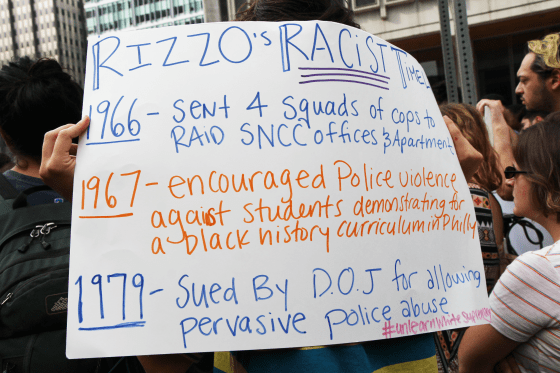 RIZZO'S RACIST TIMEL
1966 - SENT 4 SQUADS OF COPS TO
RAID SNCC OFFICES & Apartment
1967 - encouraged Police violence
against students demonstrating for
a black history curriculum in Philly
1979 - Sued By D.O.J for allowing
pervasive police abuse
#unlearnwhitesupremacy